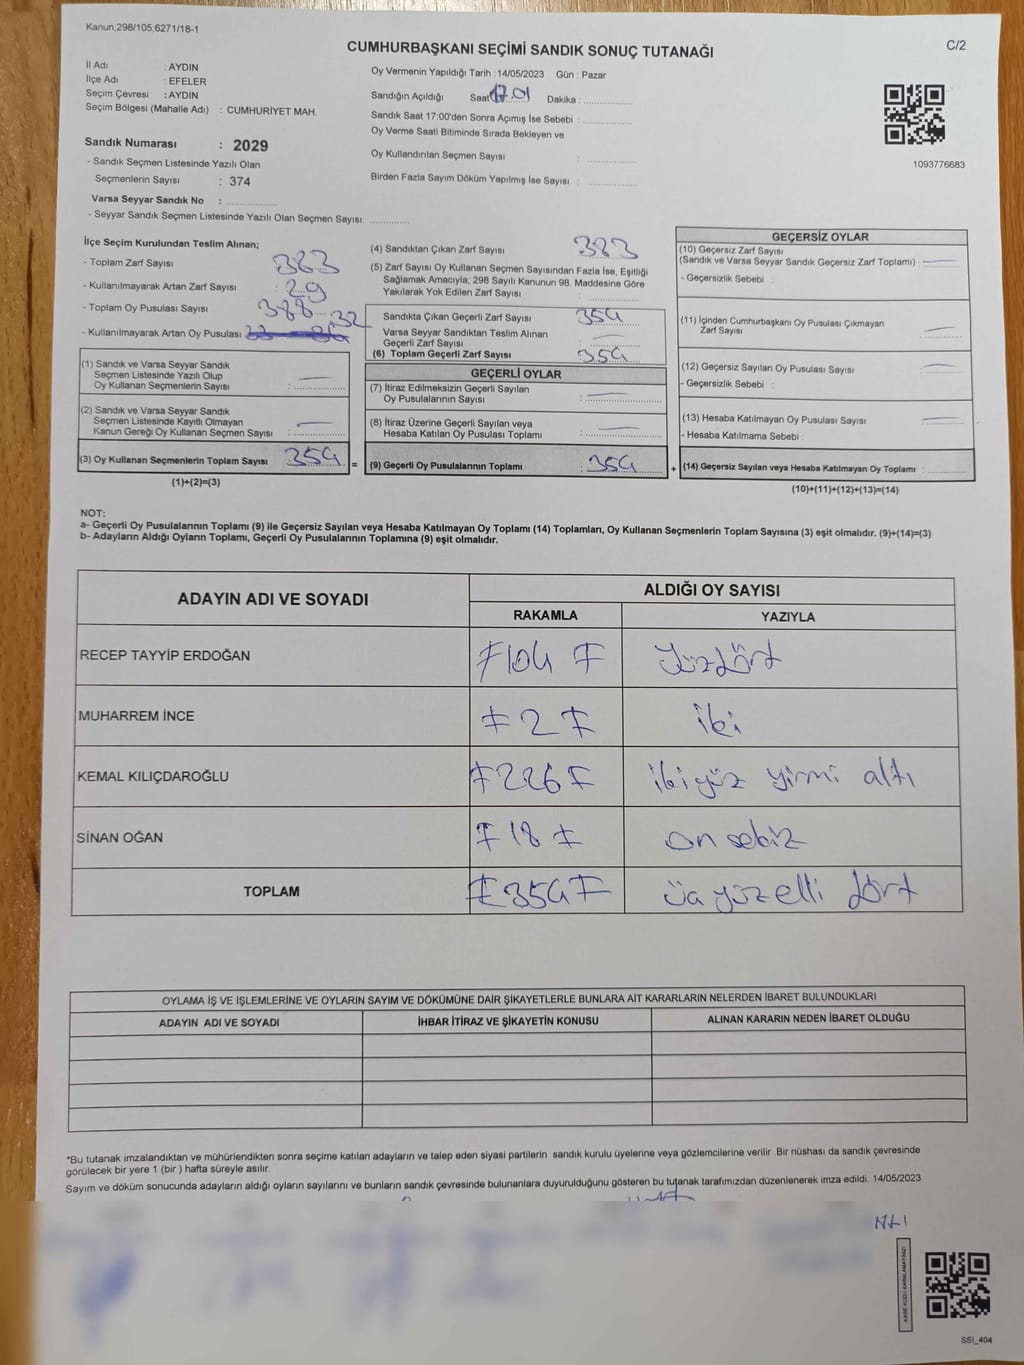 Kanun;298/105,6271/18-1
C/2
CUMHURBAŞKANI SEÇİMİ SANDIK SONUÇ TUTANAĞI
İl Adı : AYDIN
İlçe Adı : EFELER
Seçim Çevresi : AYDIN
Seçim Bölgesi (Mahalle Adı) : CUMHURİYET MAH.
Sandık Numarası : 2029
- Sandık Seçmen Listesinde Yazılı Olan
Seçmenlerin Sayısı : 374
Varsa Seyyar Sandık No : ................
- Seyyar Sandık Seçmen Listesinde Yazılı Olan Seçmen Sayısı: ............
Oy Vermenin Yapıldığı Tarih : 14/05/2023 Gün : Pazar
Sandığın Açıldığı Saat 17.01 Dakika : ................
Sandık Saat 17:00'den Sonra Açımış İse Sebebi : ................
Oy Verme Saati Bitiminde Sırada Bekleyen ve
Oy Kullandırılan Seçmen Sayısı : ................
Birden Fazla Sayım Döküm Yapılmış İse Sayısı : ................
1093776683
İlçe Seçim Kurulundan Teslim Alınan;
- Toplam Zarf Sayısı 383
- Kullanılmayarak Artan Zarf Sayısı : 29
- Toplam Oy Pusulası Sayısı : 388
- Kullanılmayarak Artan Oy Pusulası 32
(1) Sandık ve Varsa Seyyar Sandık
Seçmen Listesinde Yazılı Olup
Oy Kullanan Seçmenlerin Sayısı : —
(2) Sandık ve Varsa Seyyar Sandık
Seçmen Listesinde Kayıtlı Olmayan
Kanun Gereği Oy Kullanan Seçmen Sayısı : —
(3) Oy Kullanan Seçmenlerin Toplam Sayısı 354 =
(1)+(2)=(3)
(4) Sandıktan Çıkan Zarf Sayısı 383
(5) Zarf Sayısı Oy Kullanan Seçmen Sayısından Fazla İse, Eşitliği
Sağlamak Amacıyla; 298 Sayılı Kanunun 98. Maddesine Göre
Yakılarak Yok Edilen Zarf Sayısı : ................
Sandıkta Çıkan Geçerli Zarf Sayısı 354
Varsa Seyyar Sandıktan Teslim Alınan
Geçerli Zarf Sayısı : —
(6) Toplam Geçerli Zarf Sayısı 354
GEÇERLİ OYLAR
(7) İtiraz Edilmeksizin Geçerli Sayılan
Oy Pusulalarının Sayısı : —
(8) İtiraz Üzerine Geçerli Sayılan veya
Hesaba Katılan Oy Pusulası Toplamı : —
(9) Geçerli Oy Pusulalarının Toplamı : 354 +
GEÇERSİZ OYLAR
(10) Geçersiz Zarf Sayısı
(Sandık ve Varsa Seyyar Sandık Geçersiz Zarf Toplamı) : —
- Geçersizlik Sebebi :
(11) İçinden Cumhurbaşkanı Oy Pusulası Çıkmayan
Zarf Sayısı : —
(12) Geçersiz Sayılan Oy Pusulası Sayısı : —
- Geçersizlik Sebebi :
(13) Hesaba Katılmayan Oy Pusulası Sayısı : —
- Hesaba Katılmama Sebebi :
(14) Geçersiz Sayılan veya Hesaba Katılmayan Oy Toplamı : ............
(10)+(11)+(12)+(13)=(14)
NOT:
a- Geçerli Oy Pusulalarının Toplamı (9) ile Geçersiz Sayılan veya Hesaba Katılmayan Oy Toplamı (14) Toplamları, Oy Kullanan Seçmenlerin Toplam Sayısına (3) eşit olmalıdır. (9)+(14)=(3)
b- Adayların Aldığı Oyların Toplamı, Geçerli Oy Pusulalarının Toplamına (9) eşit olmalıdır.
ADAYIN ADI VE SOYADI ALDIĞI OY SAYISI
RAKAMLA YAZIYLA
RECEP TAYYİP ERDOĞAN 104 Yüzdört
MUHARREM İNCE 2 iki
KEMAL KILIÇDAROĞLU 226 ikiyüz yirmi altı
SİNAN OĞAN 18 on sekiz
TOPLAM 354 üç yüz elli dört
OYLAMA İŞ VE İŞLEMLERİNE VE OYLARIN SAYIM VE DÖKÜMÜNE DAİR ŞİKAYETLERLE BUNLARA AİT KARARLARIN NELERDEN İBARET BULUNDUKLARI
ADAYIN ADI VE SOYADI İHBAR İTİRAZ VE ŞİKAYETİN KONUSU ALINAN KARARIN NEDEN İBARET OLDUĞU
*Bu tutanak imzalandıktan ve mühürlendikten sonra seçime katılan adayların ve talep eden siyasi partilerin sandık kurulu üyelerine veya gözlemcilerine verilir .Bir nüshası da sandık çevresinde
görülecek bir yere 1 (bir ) hafta süreyle asılır.
Sayım ve döküm sonucunda adayların aldığı oyların sayılarını ve bunların sandık çevresinde bulunanlara duyurulduğunu gösteren bu tutanak tarafımızdan düzenlenerek imza edildi. 14/05/2023
KARE KODU KARALAMAYINIZ!
SSI_404